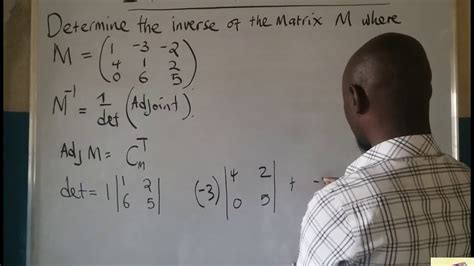 Determine the inverse of the Matrix M where
M = ( 1 -3 -2
4 1 2
0 6 5 )
M⁻¹ = 1/det (Adjoint)
Adj M = Cₘᵀ
det = 1 | 1 2 (-3) | 4 2 | + -
6 5 | 0 5 |